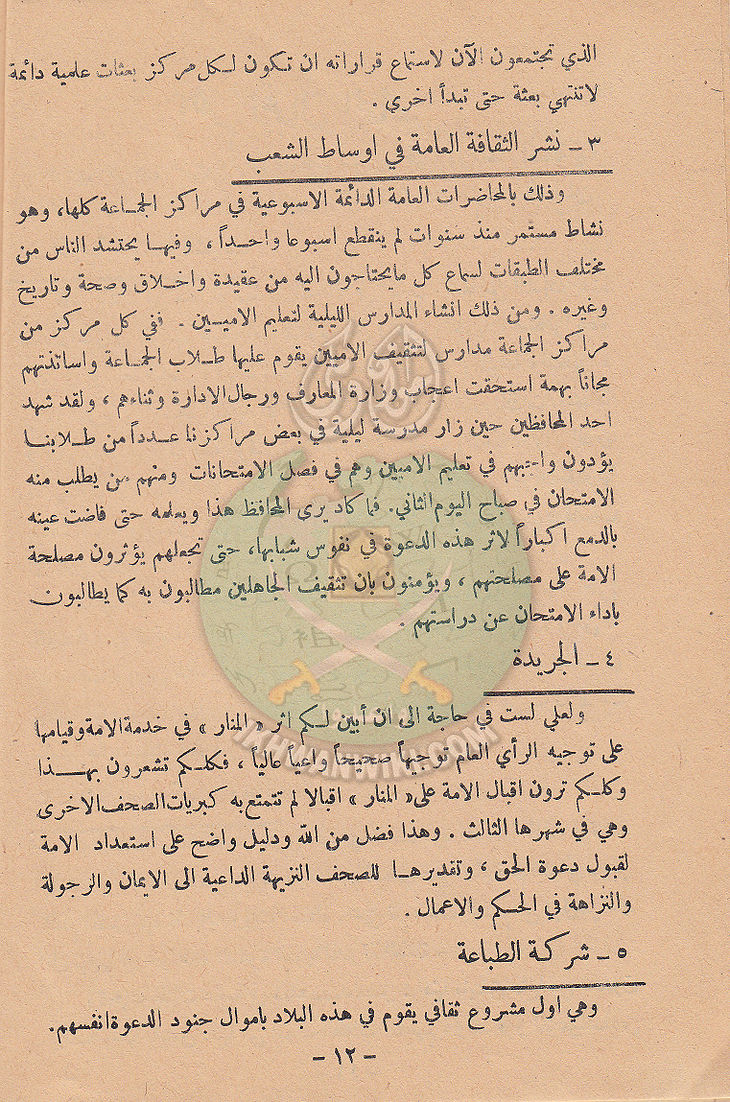 الذي تجتمعون الآن لاستماع قراراته ان تكون لكل مركز بعثات علمية دائمة
لاتنتهي بعثة حتى تبدأ اخرى .
٣ ـ نشر الثقافة العامة في اوساط الشعب
وذلك بالمحاضرات العامة الدائمة الاسبوعية في مراكز الجماعة كلها، وهو
نشاط مستمر منذ سنوات لم ينقطع اسبوعا واحداً ، وفيها يحتشد الناس من
مختلف الطبقات لسماع كل مايحتاجون اليه من عقيدة واخلاق وصحة وتاريخ
وغيره . ومن ذلك انشاء المدارس الليلية لتعليم الاميين . ففي كل مركز من
مراكز الجماعة مدارس لتثقيف الاميين يقوم عليها طلاب الجماعة واساتذتهم
مجاناً بهمة استحقت اعجاب وزارة المعارف ورجال الادارة وثناءهم ، ولقد شهد
احد المحافظين حين زار مدرسة ليلية في بعض مراكزنا عدداً من طلابنا
يؤدون واجبهم في تعليم الاميين وهم في فصل الامتحانات ومنهم من يطلب منه
الامتحان في صباح اليوم الثاني. فما كاد يرى المحافظ هذا ويعلمه حتى فاضت عينه
بالدمع اكباراً لاثر هذه الدعوة في نفوس شبابها، حتى تجعلهم يؤثرون مصلحة
الامة على مصلحتهم ، ويؤمنون بان تثقيف الجاهلين مطالبون به كما يطالبون
باداء الامتحان عن دراستهم .
٤ ـ الجريدة
ولعلي لست في حاجة الى ان أبين لكم اثر « المنار » في خدمة الامة وقيامها
على توجيه الرأي العام توجيهاً صحيحاً واعياً عالياً ، فكلكم تشعرون بهذا
وكلكم ترون اقبال الامة على « المنار » اقبالا لم تتمتع به كبريات الصحف الاخرى
وهي في شهرها الثالث . وهذا فضل من الله ودليل واضح على استعداد الامة
لقبول دعوة الحق ، وتقديرها للصحف النزيهة الداعية الى الايمان والرجولة
والنزاهة في الحكم والاعمال .
٥ ـ شركة الطباعة
وهي اول مشروع ثقافي يقوم في هذه البلاد باموال جنود الدعوة انفسهم.
ـ ١٢ ـ
IKHWANWIKI.COM